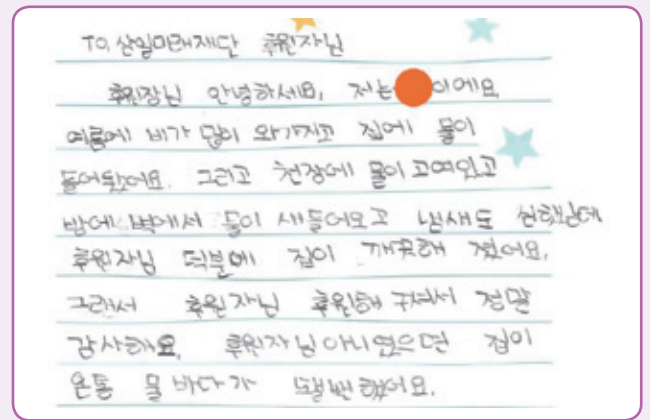 TO. 삼일미래재단 후원자님
후원장님 안녕하세요, 저는 이에요.
여름에 비가 많이 와가지고 집에 물이
들어왔어요. 그리고 천장에 물이 고여있고
밤에 벽에서 물이 새들어오고 냄새도 심했는데
후원자님 덕분에 집이 깨끗해 졌어요.
그래서 후원자님 후원해 주셔서 정말
감사해요. 후원자님 아니였으면 집이
온통 물 바다가 될뻔 했어요.